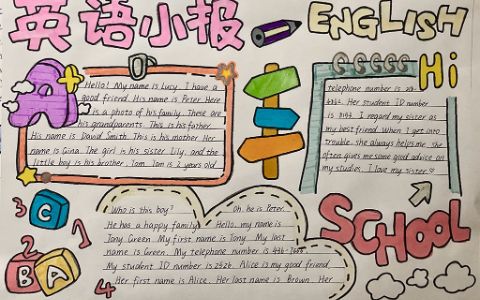 英语小报
ENGLISH
A+
Hello! My name is Lucy. I have a
good friend. His name is Peter. Here
is a photo of his family. These are
his grandparents. This is his father.
His name is David Smith. This is his mother. Her
name is Gina. The girl is his sister, Lily, and the
little boy is his brother, Tom. Tom is 2 years old.
Hi
telephone number is
Her student ID number
is I regard my sister as
my best friend. When I get into
trouble, she always helps me. She
often gives me some good advice on
my studies. I love my sister.
Who is this boy? Oh, he is Peter.
He has a happy family! Hello, my name is
Tony Green. My first name is Tony. My last
name is Green. My telephone number is
My student ID number is 2526. Alice is my good friend.
Her first name is Alice. Her last name is Brown. Her
SCHOOL
3
C
2
1
B
A
4